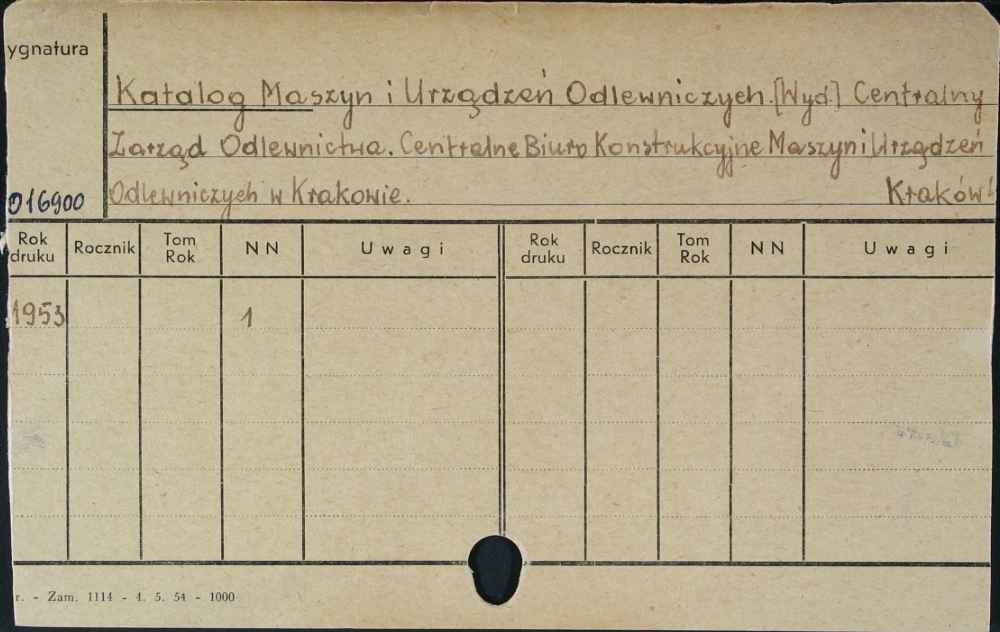 ygnatura
Katalog Maszyn i Urządzeń Odlewniczych. [Wyd.] Centralny
Zarząd Odlewnictwa. Centralne Biuro Konstrukcyjne Maszyn i Urządzeń
016900 Odlewniczych w Krakowie. Kraków
Rok druku Rocznik Tom Rok NN Uwagi Rok druku Rocznik Tom Rok NN Uwagi
1953 1
r. - Zam. 1114 - 4. 5. 54 - 1000